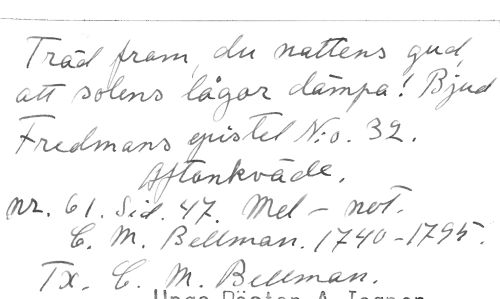 Träd fram, du nattens gud,
att solens lågor dämpa! Bjud
Fredmans epistel N:o. 32.
Aftonkväde.
nr. 61. Sid. 47. Mel - not.
C. M. Bellman. 1740-1795.
Tx. C. M. Bellman.